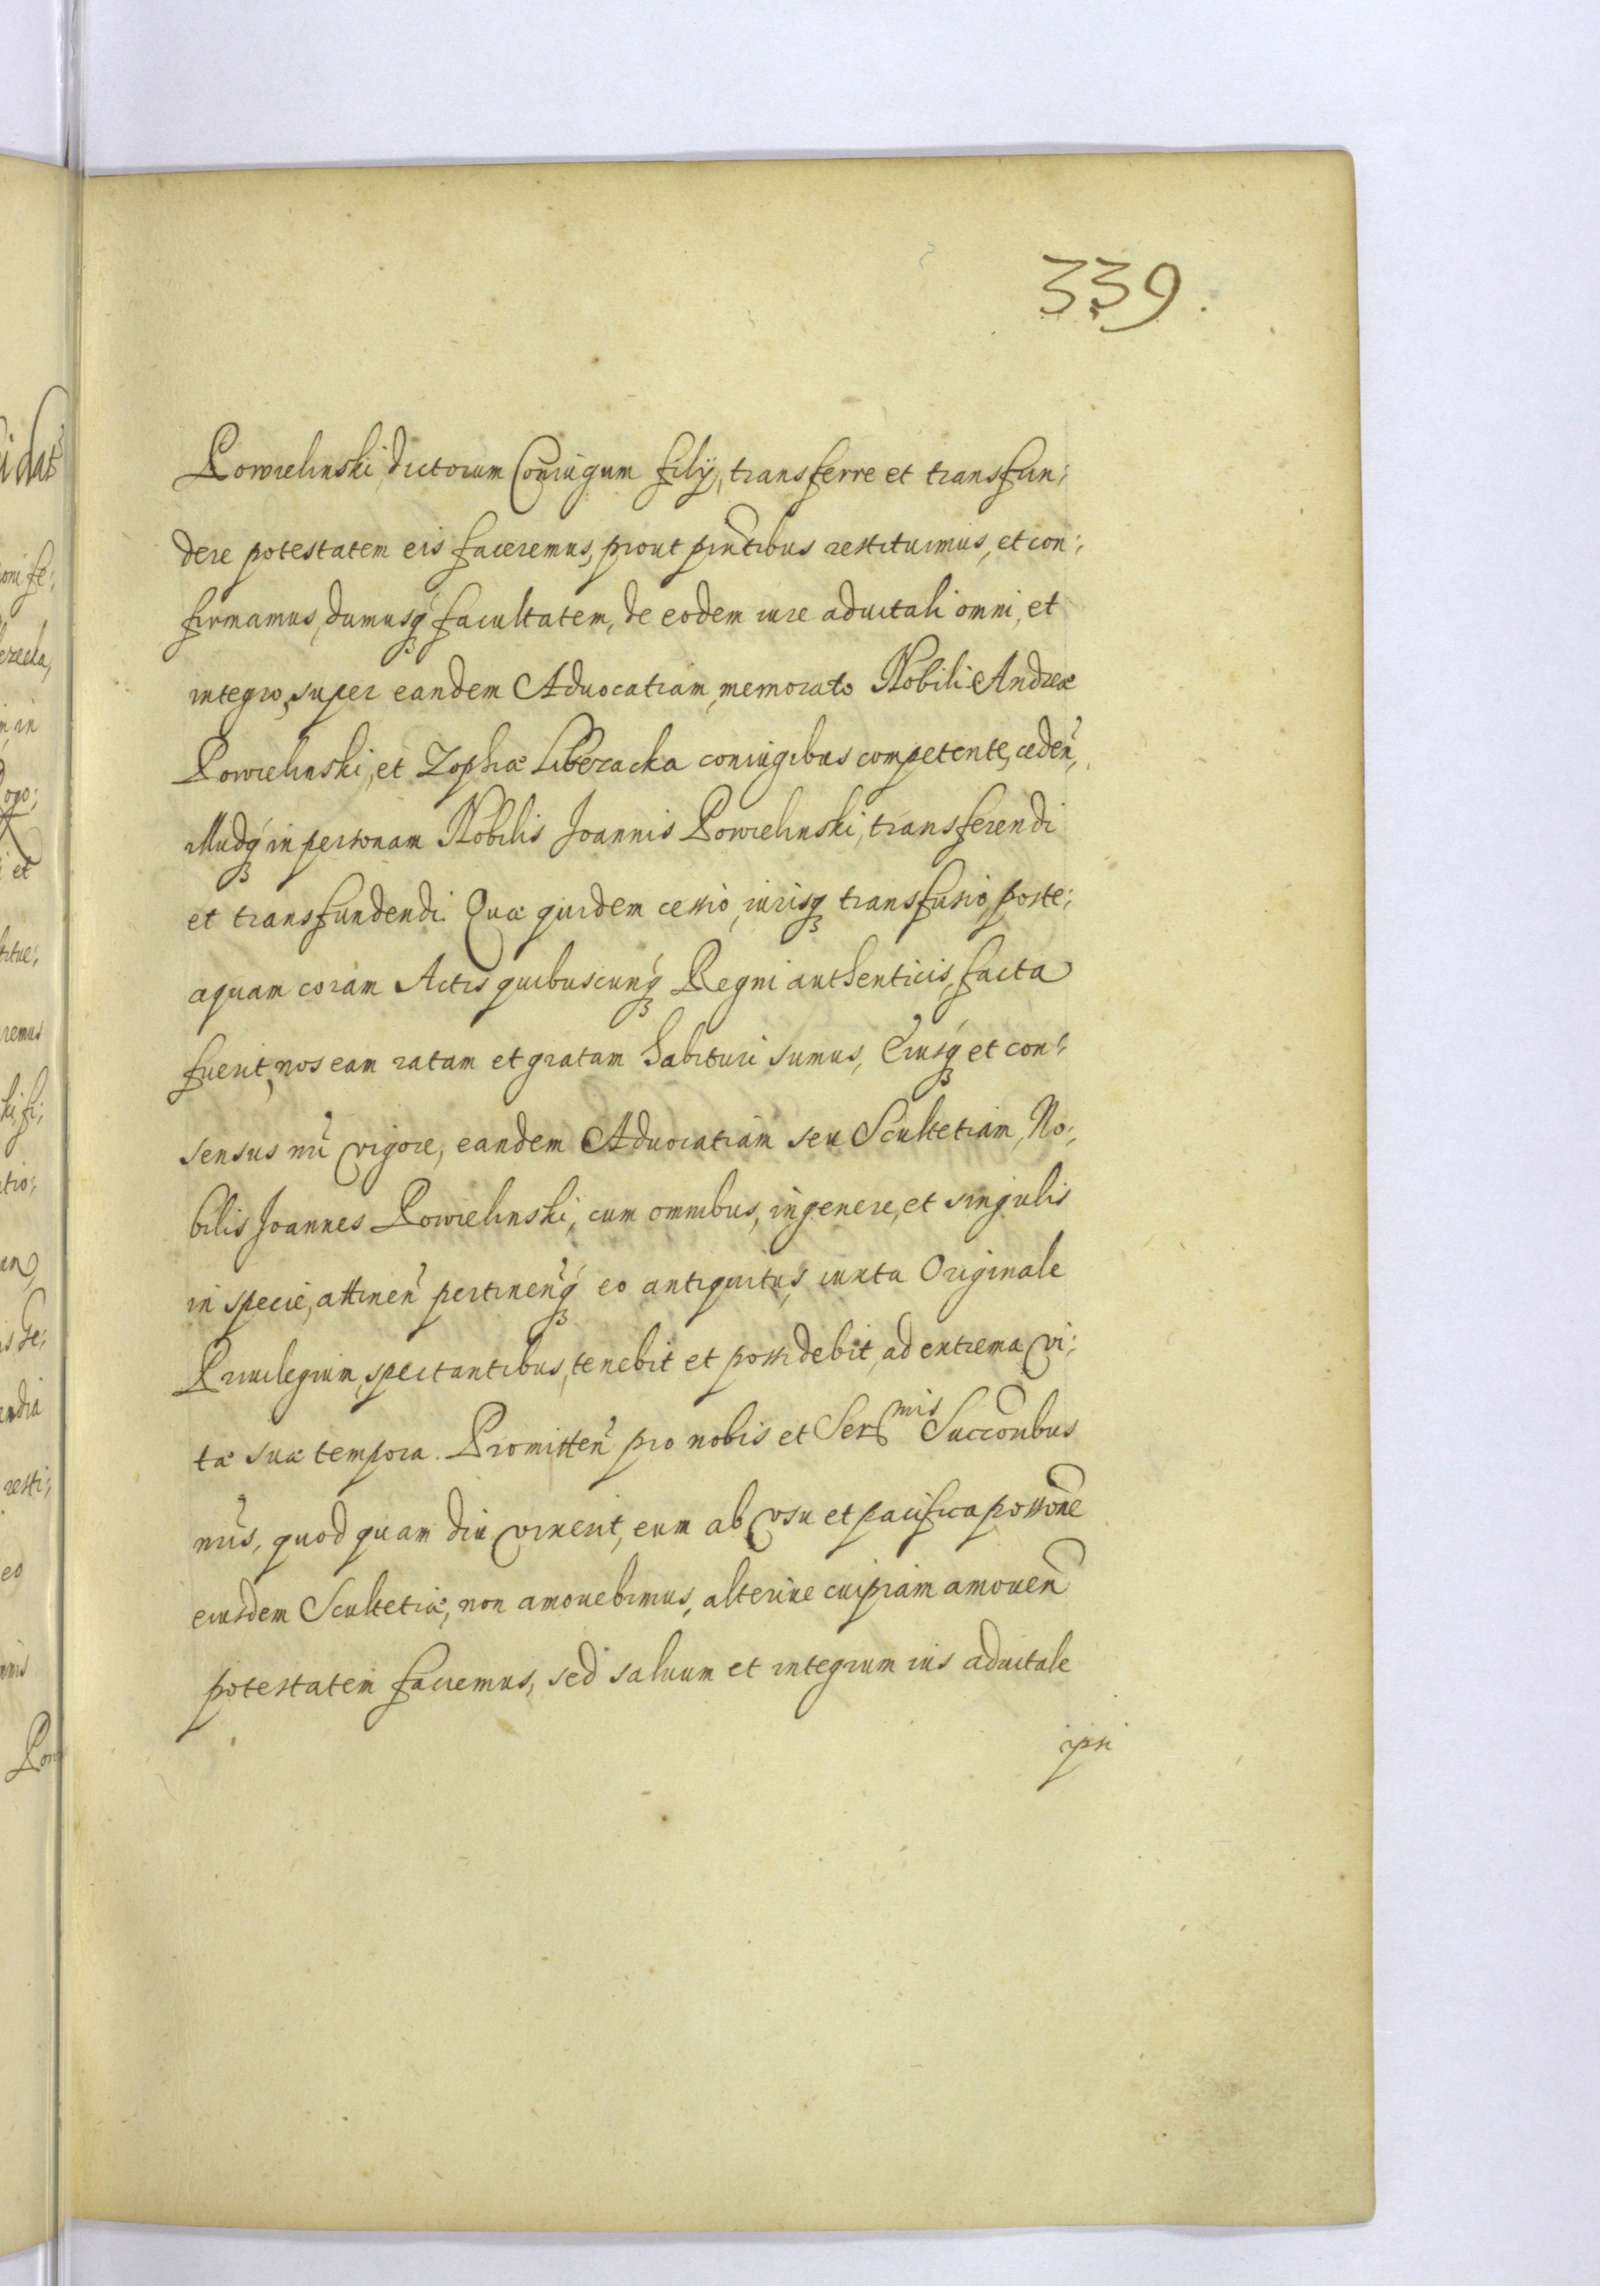 339.
Powielinski, dictorum Coniugum filÿ, transferre et transfun:
dere potestatem eis faceremus, prout pñtibus restituimus, et con:
firmamus, damusq₃ facultatem, de eodem iure aduitali omni, et
integro, super eandem Aduocatiam, memorato Nobili Andreæ
Powielinski, et Zophiæ Liberacka coniugibus competente, ceden̄,
illudq₃ in personam Nobilis Joannis Powielinski, transferendi
et transfundendi. Quæ quidem cessio, iurisq₃ transfusio, poste:
aquam coram Actis quibuscunq₃ Regni authenticis, facta
fuerit, nos eam ratam et gratam habituri sumus, Eiusq₃ et con:
sensus nr̄i vigore, eandem Aduocatiam seu Scultetiam, No:
bilis Joannes Powielinski, cum omnibus, in genere, et singulis
in specie, attinen̄ pertinen̄q₃ eo antiquitus, iuxta Originale
Priuilegium, spectantibus, tenebit et possidebit, ad extrema vi:
tæ suæ tempora. Promitten̄ pro nobis et Ser^mis Succōribus
nr̄is, quod quam diu vixerit, eum ab vsu et pacifica possōne
eiusdem Scultetiæ, non amouebimus, alteriue cuipiam amouen̄
potestatem faciemus, sed saluum et integrum ius aduitale
ipsi